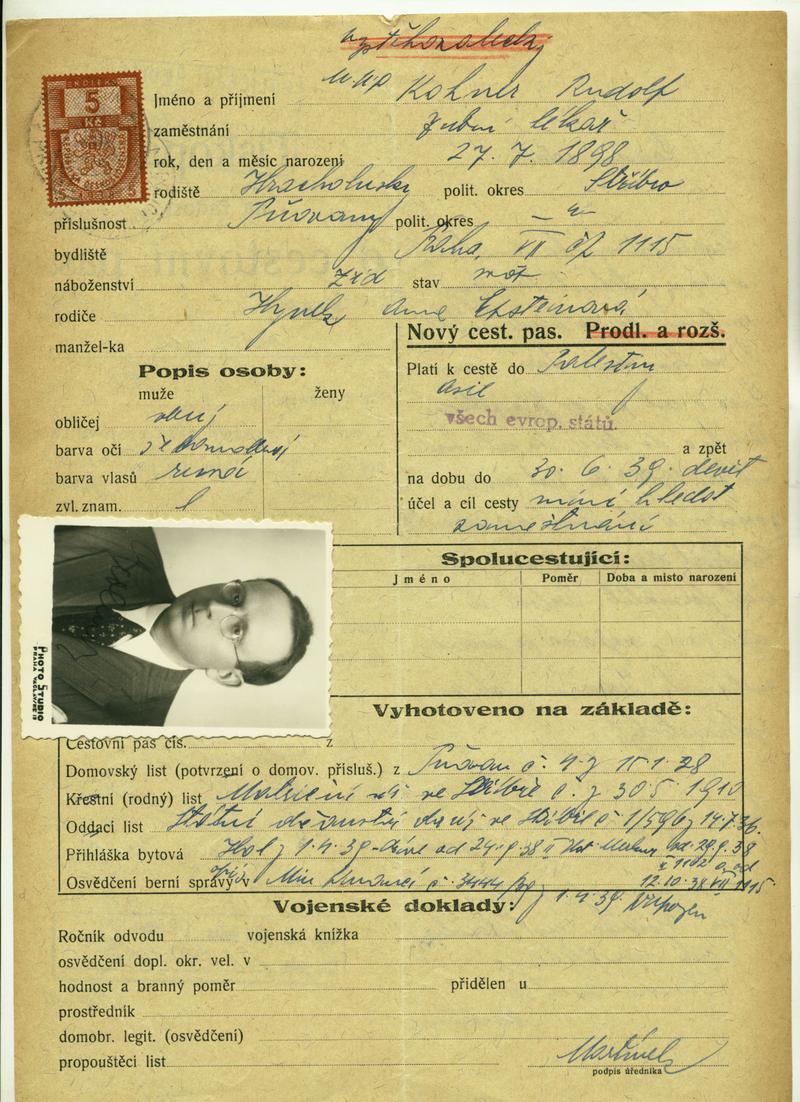 KOLEK
5
Kč
MUDr
Jméno a příjmení Kohner Rudolf
zaměstnání zubní lékař
rok, den a měsíc narození 27. 7. 1898
rodiště Hracholusky polit. okres Stříbro
příslušnost Pňovany polit. okres — " —
bydliště Praha, VII čp 1115
náboženství žid stav
rodiče Hynek Anna Epsteinová
manžel-ka
Nový cest. pas. Prodl. a rozš.
Popis osoby:
muže ženy
obličej
barva očí
barva vlasů
zvl. znam.
Platí k cestě do Palestiny
Asie
všech evrop. států.
a zpět
na dobu do 30. 6. 39.
účel a cíl cesty míní hledat
zaměstnání
PHOTO STUDIO
PRAHA
Spolucestující:
Jméno Poměr Doba a místo narození
Vyhotoveno na základě:
Cestovní pas čís. z
Domovský list (potvrzení o domov. přísluš.) z Pňovan č. 4 z 15. 1. 28
Křestní (rodný) list ve Stříbře č. z 30. 5. 1910
Oddací list ve Stříbře č 1/596 z 14. 7. 36.
Přihláška bytová 1. 4. 39 od 24. 9. 38 od 29. 9. 38
Osvědčení berní správy v Min financí č. 3444/39 z 1. 4. 39 12. 10. 38 VII 1115
Vojenské doklady:
Ročník odvodu vojenská knížka
osvědčení dopl. okr. vel. v
hodnost a branný poměr přidělen u
prostředník
domobr. legit. (osvědčení)
propouštěcí list
podpis úředníka